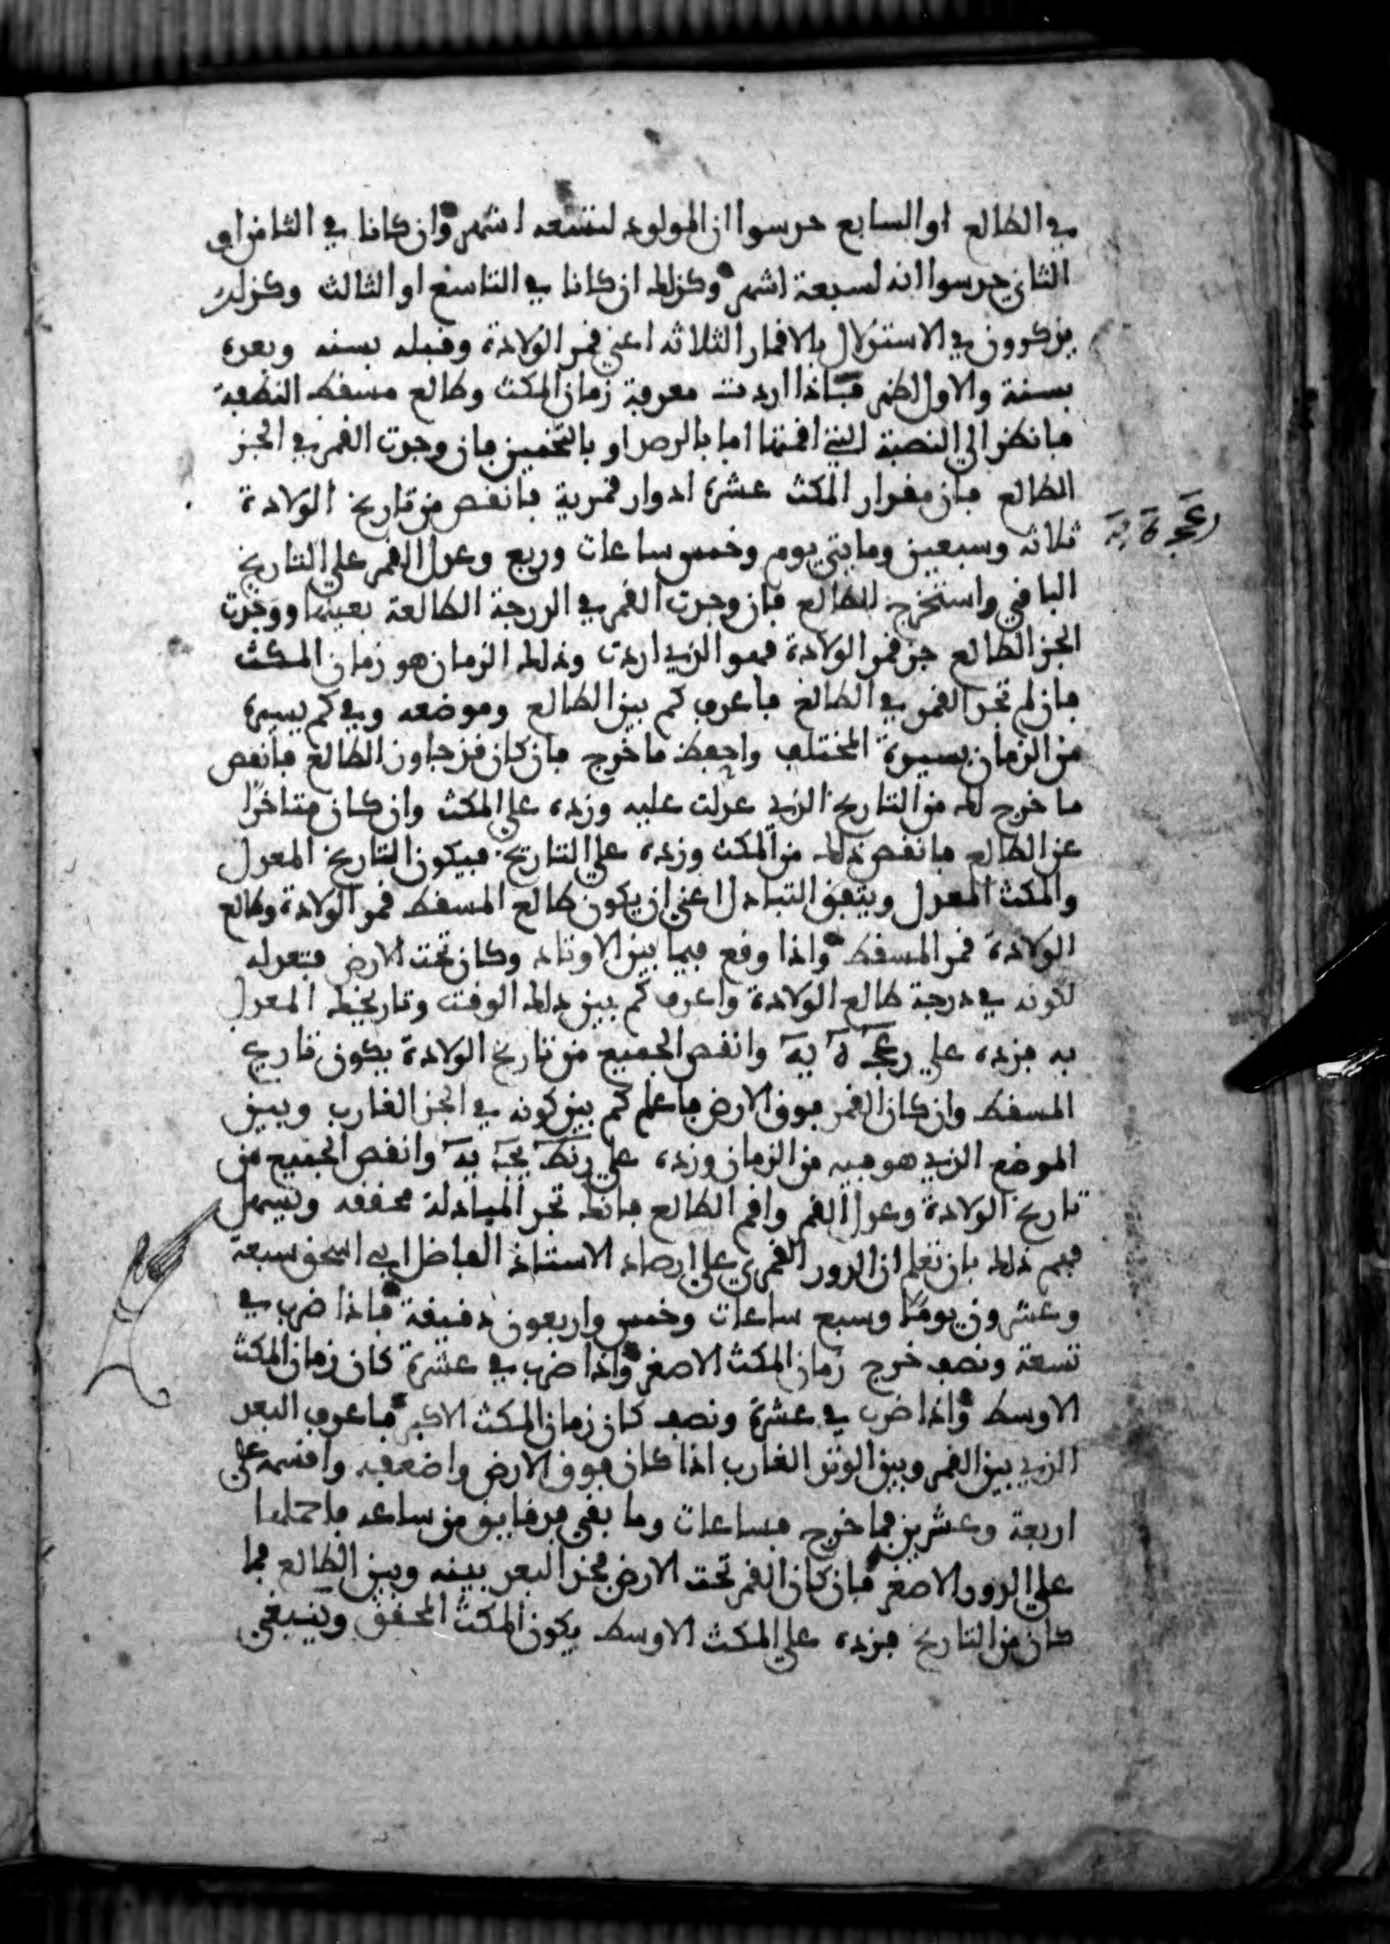 في الطالع او السابع حدسوا ان المولود لتسعه اشهر وان كانا في الثامن او
الثاني حدسوا انه لسبعة اشهر وكذلك ان كانا في التاسع او الثالث وكذلك
يذكرون في الاستدلال بالاقمار الثلاثه اعني قمر الولادة وقبله بسنه وبعده
بسنة والاول اظهر فاذا اردت معرفة زمان المكث وطالع مسقط النطفة
فانظر الى النصبة التي اقمتها اما بالرصد او بالتخمين فان وجدت القمر في الجزء
الطالع فان مقدار المكث عشرة ادوار قمرية فانقص من تاريخ الولادة
ثلاثه وسبعين ومايتي يوم وخمس ساعات وربع وعدل القمر على التاريخ
رعجَ ةَ يهَ
الباقي واستخرج الطالع فان وجدت القمر في الدرجة الطالعة بعينها ووجدت
الجزء الطالع جزء قمر الولادة فهو الذي اردت وذلك الزمان هو زمان المكث
فان لم تجد القمر في الطالع فاعرف كم بين الطالع وموضعه وفي كم يسيره
من الزمان بسيره المختلف واحفظ ما خرج فان كان قد جاوز الطالع فانقص
ما خرج لك من التاريخ الذي عدلت عليه وزده على المكث وان كان متاخرا
عن الطالع فانقص ذلك من المكث وزده على التاريخ فيكون التاريخ المعدل
والمكث المعدل ويتفق التبادل اعني ان يكون طالع المسقط قمر الولادة وطالع
الولادة قمر المسقط واذا وقع فيما بين الاوتاد وكان تحت الارض فتعدله
لكونه في درجة طالع الولادة واعرف كم بين ذلك الوقت وتاريخك المعدل
به فزده على رعجَ ةَ يهَ وانقص الجميع من تاريخ الولادة يكون تاريخ
المسقط وان كان القمر فوق الارض فاعلم كم بين كونه في الجزء الغارب وبين
الموضع الذي هو فيه من الزمان وزده على رنطَ يجَ يهَ وانقص الجميع من
تاريخ الولادة وعدل القمر واقم الطالع فانك تجد المبادلة محققه ويسهل
فهم ذلك بان تعلم ان الدور القمري على ارصاد الاستاذ الفاضل ابي اسحق سبعة
وعشرون يوما وسبع ساعات وخمس واربعون دقيقة فاذا ضرب في
تسعة ونصف خرج زمان المكث الاصغر واذا ضرب في عشرة كان زمان المكث
الاوسط واذا ضرب في عشرة ونصف كان زمان المكث الاكبر فاعرف البعد
الذي بين القمر وبين الوتد الغارب اذا كان فوق الارض واضعفه واقسمه على
اربعة وعشرين فما خرج فساعات وما بقي فدقايق من ساعه فاحملها
على الدور الاصغر فان كان القمر تحت الارض فخذ البعد بينه وبين الطالع فما
كان من التاريخ فزده على المكث الاوسط يكون المكث المحقق وينبغي